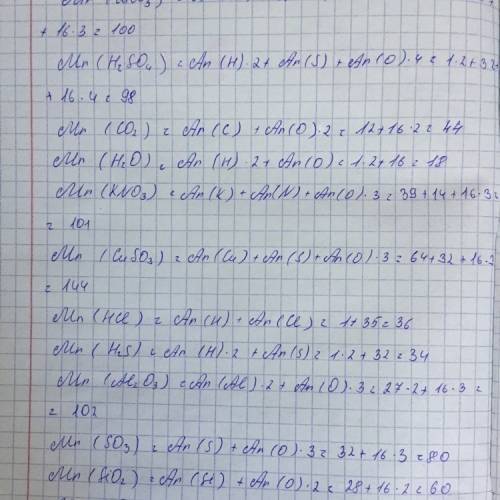 + 16·3 = 100
Mr (H₂SO₄) = Ar (H)·2 + Ar (S) + Ar (O)·4 = 1·2+32
+ 16·4 = 98
Mr (CO₂) = Ar (C) + Ar (O)·2 = 12+16·2 = 44
Mr (H₂O) = Ar (H)·2 + Ar (O) = 1·2+16 = 18
Mr (KNO₃) = Ar (K) + Ar (N) + Ar (O)·3 = 39+14+16·3=
= 101
Mr (CuSO₃) = Ar (Cu) + Ar (S) + Ar (O)·3 = 64+32+16·3
= 144
Mr (HCl) = Ar (H) + Ar (Cl) = 1+35 = 36
Mr (H₂S) = Ar (H)·2 + Ar (S) = 1·2+32 = 34
Mr (Al₂O₃) = Ar (Al)·2 + Ar (O)·3 = 27·2+16·3 =
= 102
Mr (SO₃) = Ar (S) + Ar (O)·3 = 32+16·3 = 80
Mr (SiO₂) = Ar (Si) + Ar (O)·2 = 28+16·2 = 60